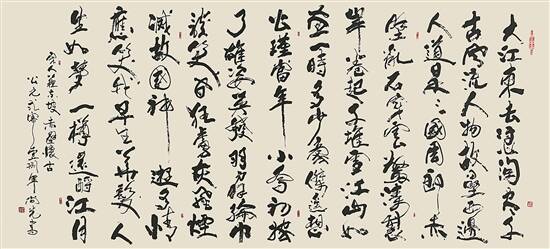 大江東去浪淘盡千
古風流人物故壘西邊
人道是三國周郎赤
壁亂石穿空驚濤裂
岸卷起千堆雪江山如
畫一時多少豪傑遙想
公瑾當年小喬初嫁
了雄姿英發羽扇綸巾
談笑間狂虜灰飛煙
滅故國神遊多情
應笑我早生華髮人
生如夢一樽還酹江月
宋人蘇東坡赤壁懷古
公元